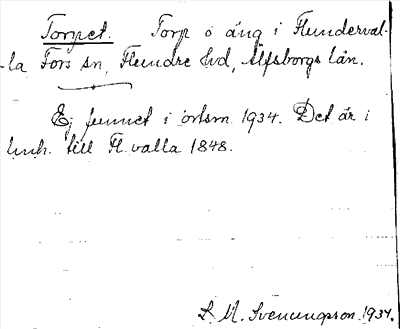 Torpet. Torp o äng i Flunderval-
la Fors sn, Flundre hd, Älfsborgs län.
Ej funnet i ortsn. 1934. Det är i
till Fl. valla 1848.
S. M. Svenungsson. 1934.